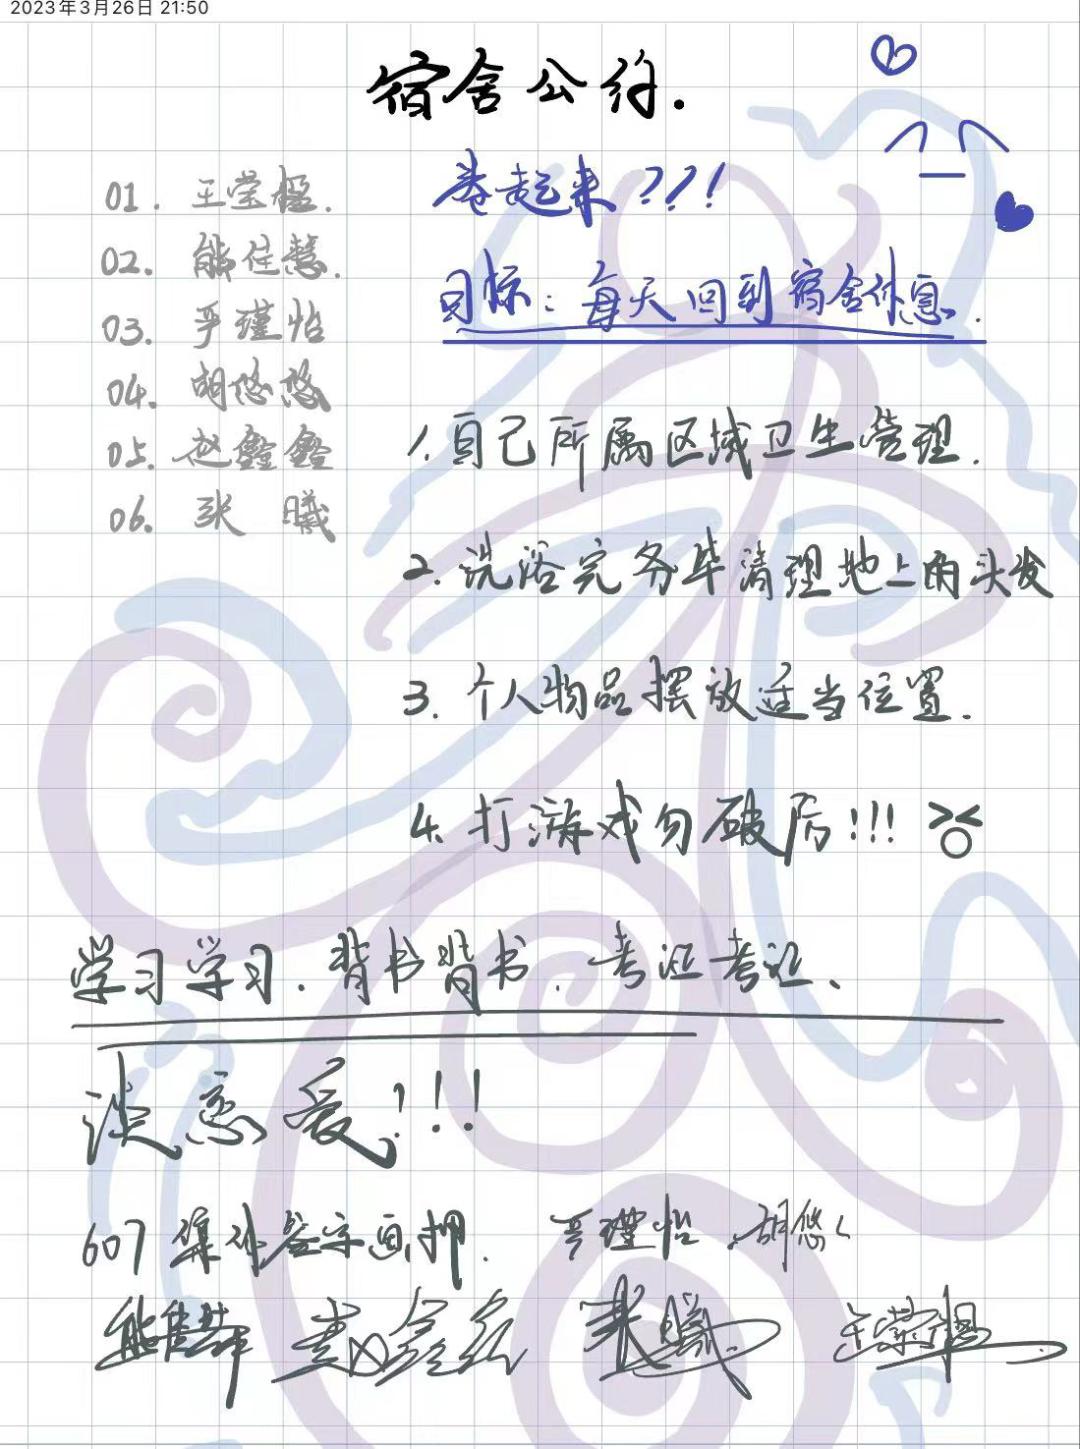 2023年3月26日 21:50
宿舍公约.
01. 王莹楹.
02. 熊佳慧.
03. 严瑾怡
04. 胡悠悠
05. 赵鑫鑫
06. 张曦
卷起来???!
目标:每天回到宿舍休息.
1.自己所属区域卫生管理.
2.洗浴完务毕清理地上的头发
3.个人物品摆放适当位置.
4.打游戏勿破房!!!
学习学习.背书背书.考证考证、
谈恋爱!!!
607集体签字画押.
严瑾怡 胡悠
张曦